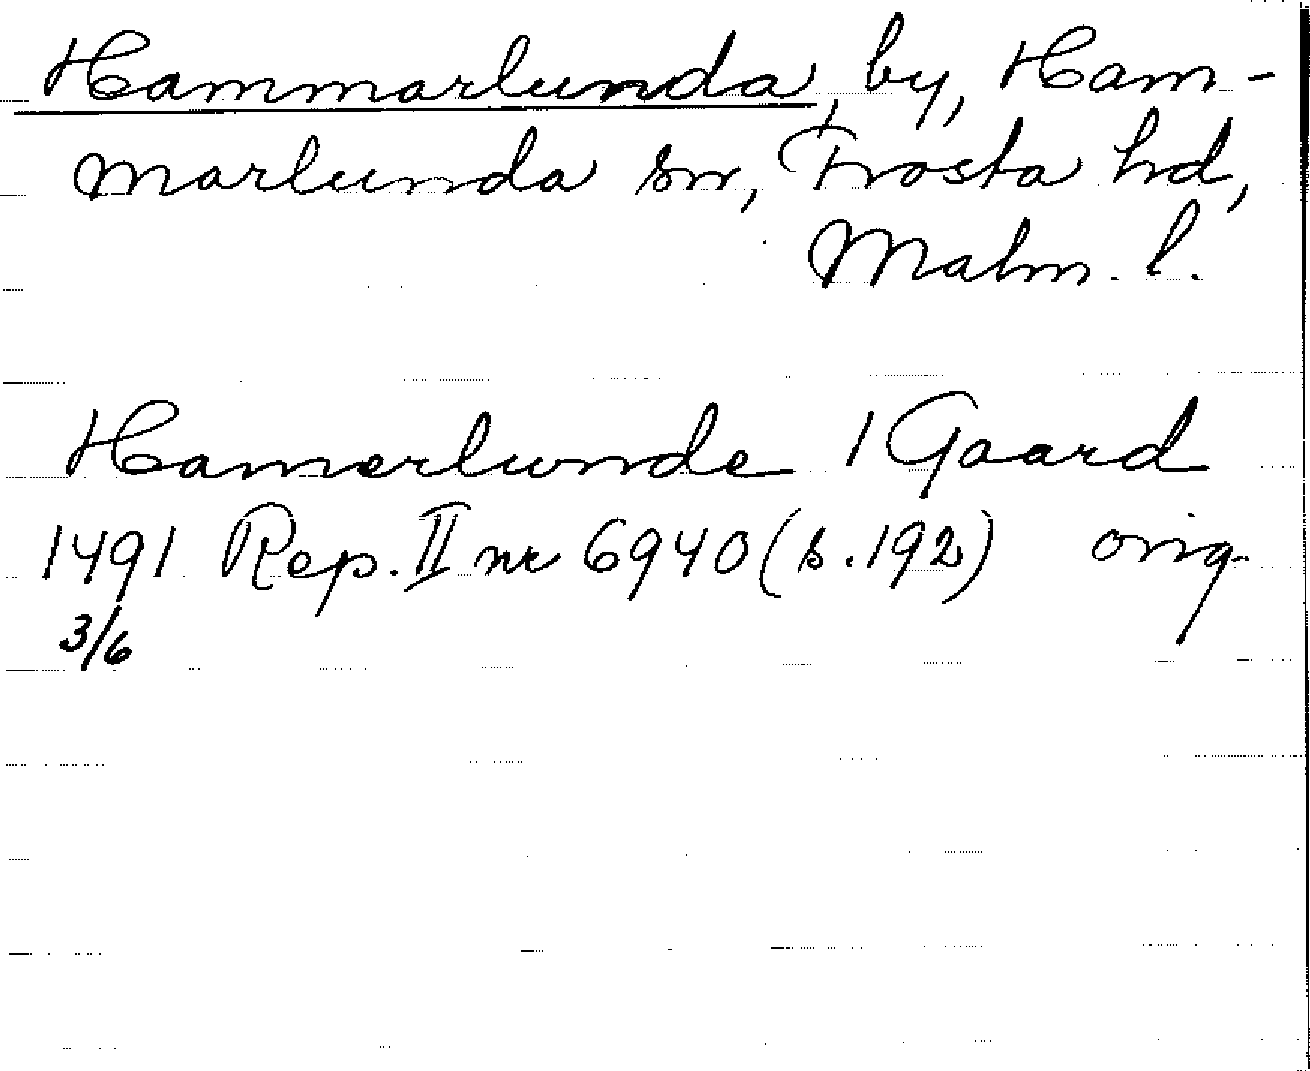 Hammarlunda, by, Ham-
marlunda sn, Frosta hd,
Malm. l.
Hamerlunde 1 Gaard
1491 Rep. II nr 6940 (s. 192) orig.
3/6